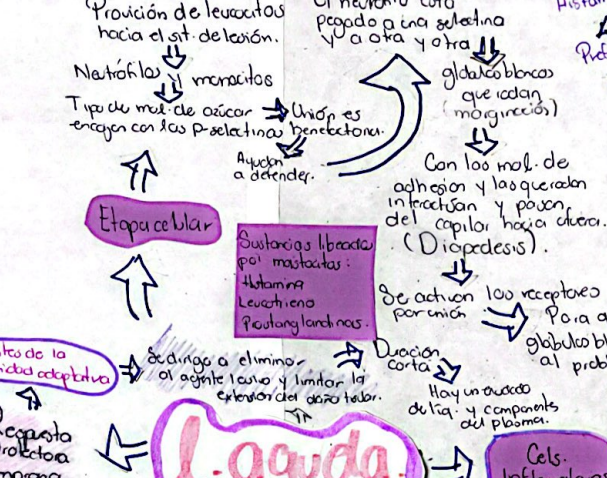 Provición de leucocitos
hacia el sit. de lesión.
Neutrófilos y monocitos
Tipo de mol. de azúcar
encajan con las P-selectina
Unión es
benefactora.
Ayudan
a defender.
El neutrófilo
pegado a una selectina
y a otra y otra
glóbulos blancos
que ruedan
(marginación)
Con las mol. de
adhesion y las que ruedan
interactúan y pasan
del capilar hacia afuera.
(Diapedesis).
Se activan los receptores
por unión
Para a
glóbulos bl
al prob
Etapa celular
Sustancias liberadas
por mastocitos:
Histamina
Leucotrieno
Prostanglandinas.
tes de la
idad adaptativa
Se dirige a eliminar
al agente lesivo y limitar la
extensión del daño tisular.
Duración
corta
Hay un
de liq. y componentes
del plasma.
Respuesta
rotectora
I. aguda.
Cels.
Histam